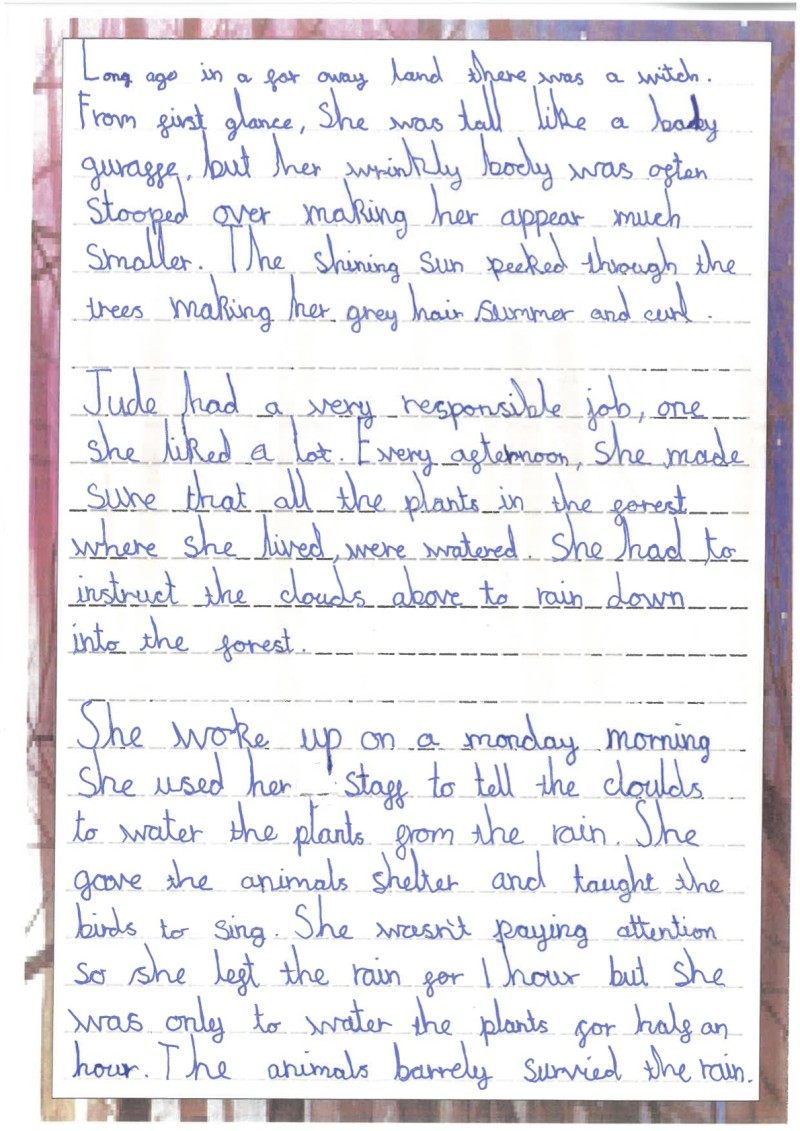 Long ago in a far away land there was a witch.
From first glance, She was tall like a baby
guraffe, but her wrinkly body was often
stooped over making her appear much
smaller. The shining sun peeked through the
trees making her grey hair summer and curl.
Jude had a very responsible job, one
she liked a lot. Every afternoon, she made
sure that all the plants in the forest
where she lived, were watered. She had to
instruct the clouds above to rain down
into the forest.
She woke up on a monday morning
She used her staff to tell the cloulds
to water the plants from the rain. She
gave the animals shelter and taught the
birds to sing. She wasn't paying attention
so she left the rain for 1 hour but she
was only to water the plants for half an
hour. The animals barrely survied the rain.